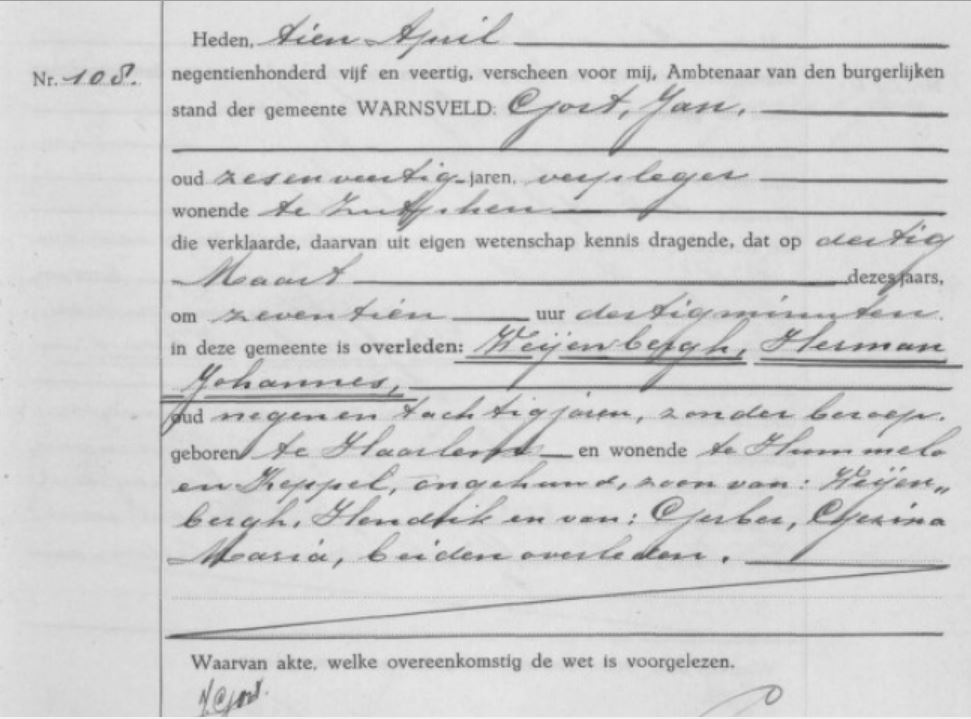 Heden, tien April
Nr. 108.
negentienhonderd vijf en veertig, verscheen voor mij, Ambtenaar van den burgerlijken
stand der gemeente WARNSVELD: Gort, Jan,
oud zesenveertig jaren, verpleger
wonende te Zutphen
die verklaarde, daarvan uit eigen wetenschap kennis dragende, dat op dertig
Maart dezes jaars,
om zeventien uur dertig minuten.
in deze gemeente is overleden: Weijenbergh, Herman
Johannes,
oud negen en tachtig jaren, zonder beroep.
geboren te Haarlem en wonende te Hummelo
en Keppel, ongehuwd, zoon van: Weijen„
bergh, Hendrik en van: Gerber, Gezina
Maria, beiden overleden.
Waarvan akte, welke overeenkomstig de wet is voorgelezen.
J. Gort.